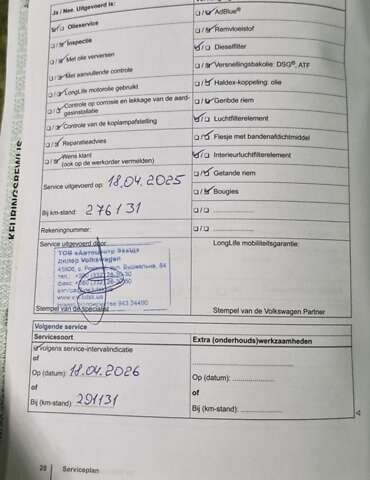 Ja / Nee. Uitgevoerd is:
Olieservice
Inspectie
Met olie verversen
Met aanvullende controle
LongLife motorolie gebruikt
Controle op corrosie en lekkage van de aard-
gasinstallatie
Controle van de koplampafstelling
Reparatieadvies
Wens klant
(ook op de werkorder vermelden)
Service uitgevoerd op: 18.04.2025
Bij km-stand: 276131
Rekeningnummer:
Service uitgevoerd door:
Дилер Volkswagen
Stempel van de specialist
AdBlue®
Remvloeistof
Dieselfilter
Versnellingsbakolie: DSG®, ATF
Haldex-koppeling: olie
Geribde riem
Luchtfilterelement
Flesje met bandenafdichtmiddel
Interieurluchtfilterelement
Getande riem
Bougies
LongLife mobiliteitsgarantie:
Stempel van de Volkswagen Partner
Volgende service
Servicesoort
volgens service-intervalindicatie
of
Op (datum): 18.04.2026
of
Bij (km-stand): 291131
Extra (onderhouds)werkzaamheden
Op (datum):
of
Bij (km-stand):
28 Serviceplan
KEURINGSBEWIJS